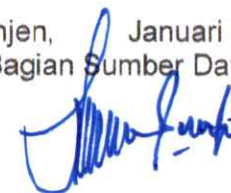 njen, Januari
Bagian Sumber Da